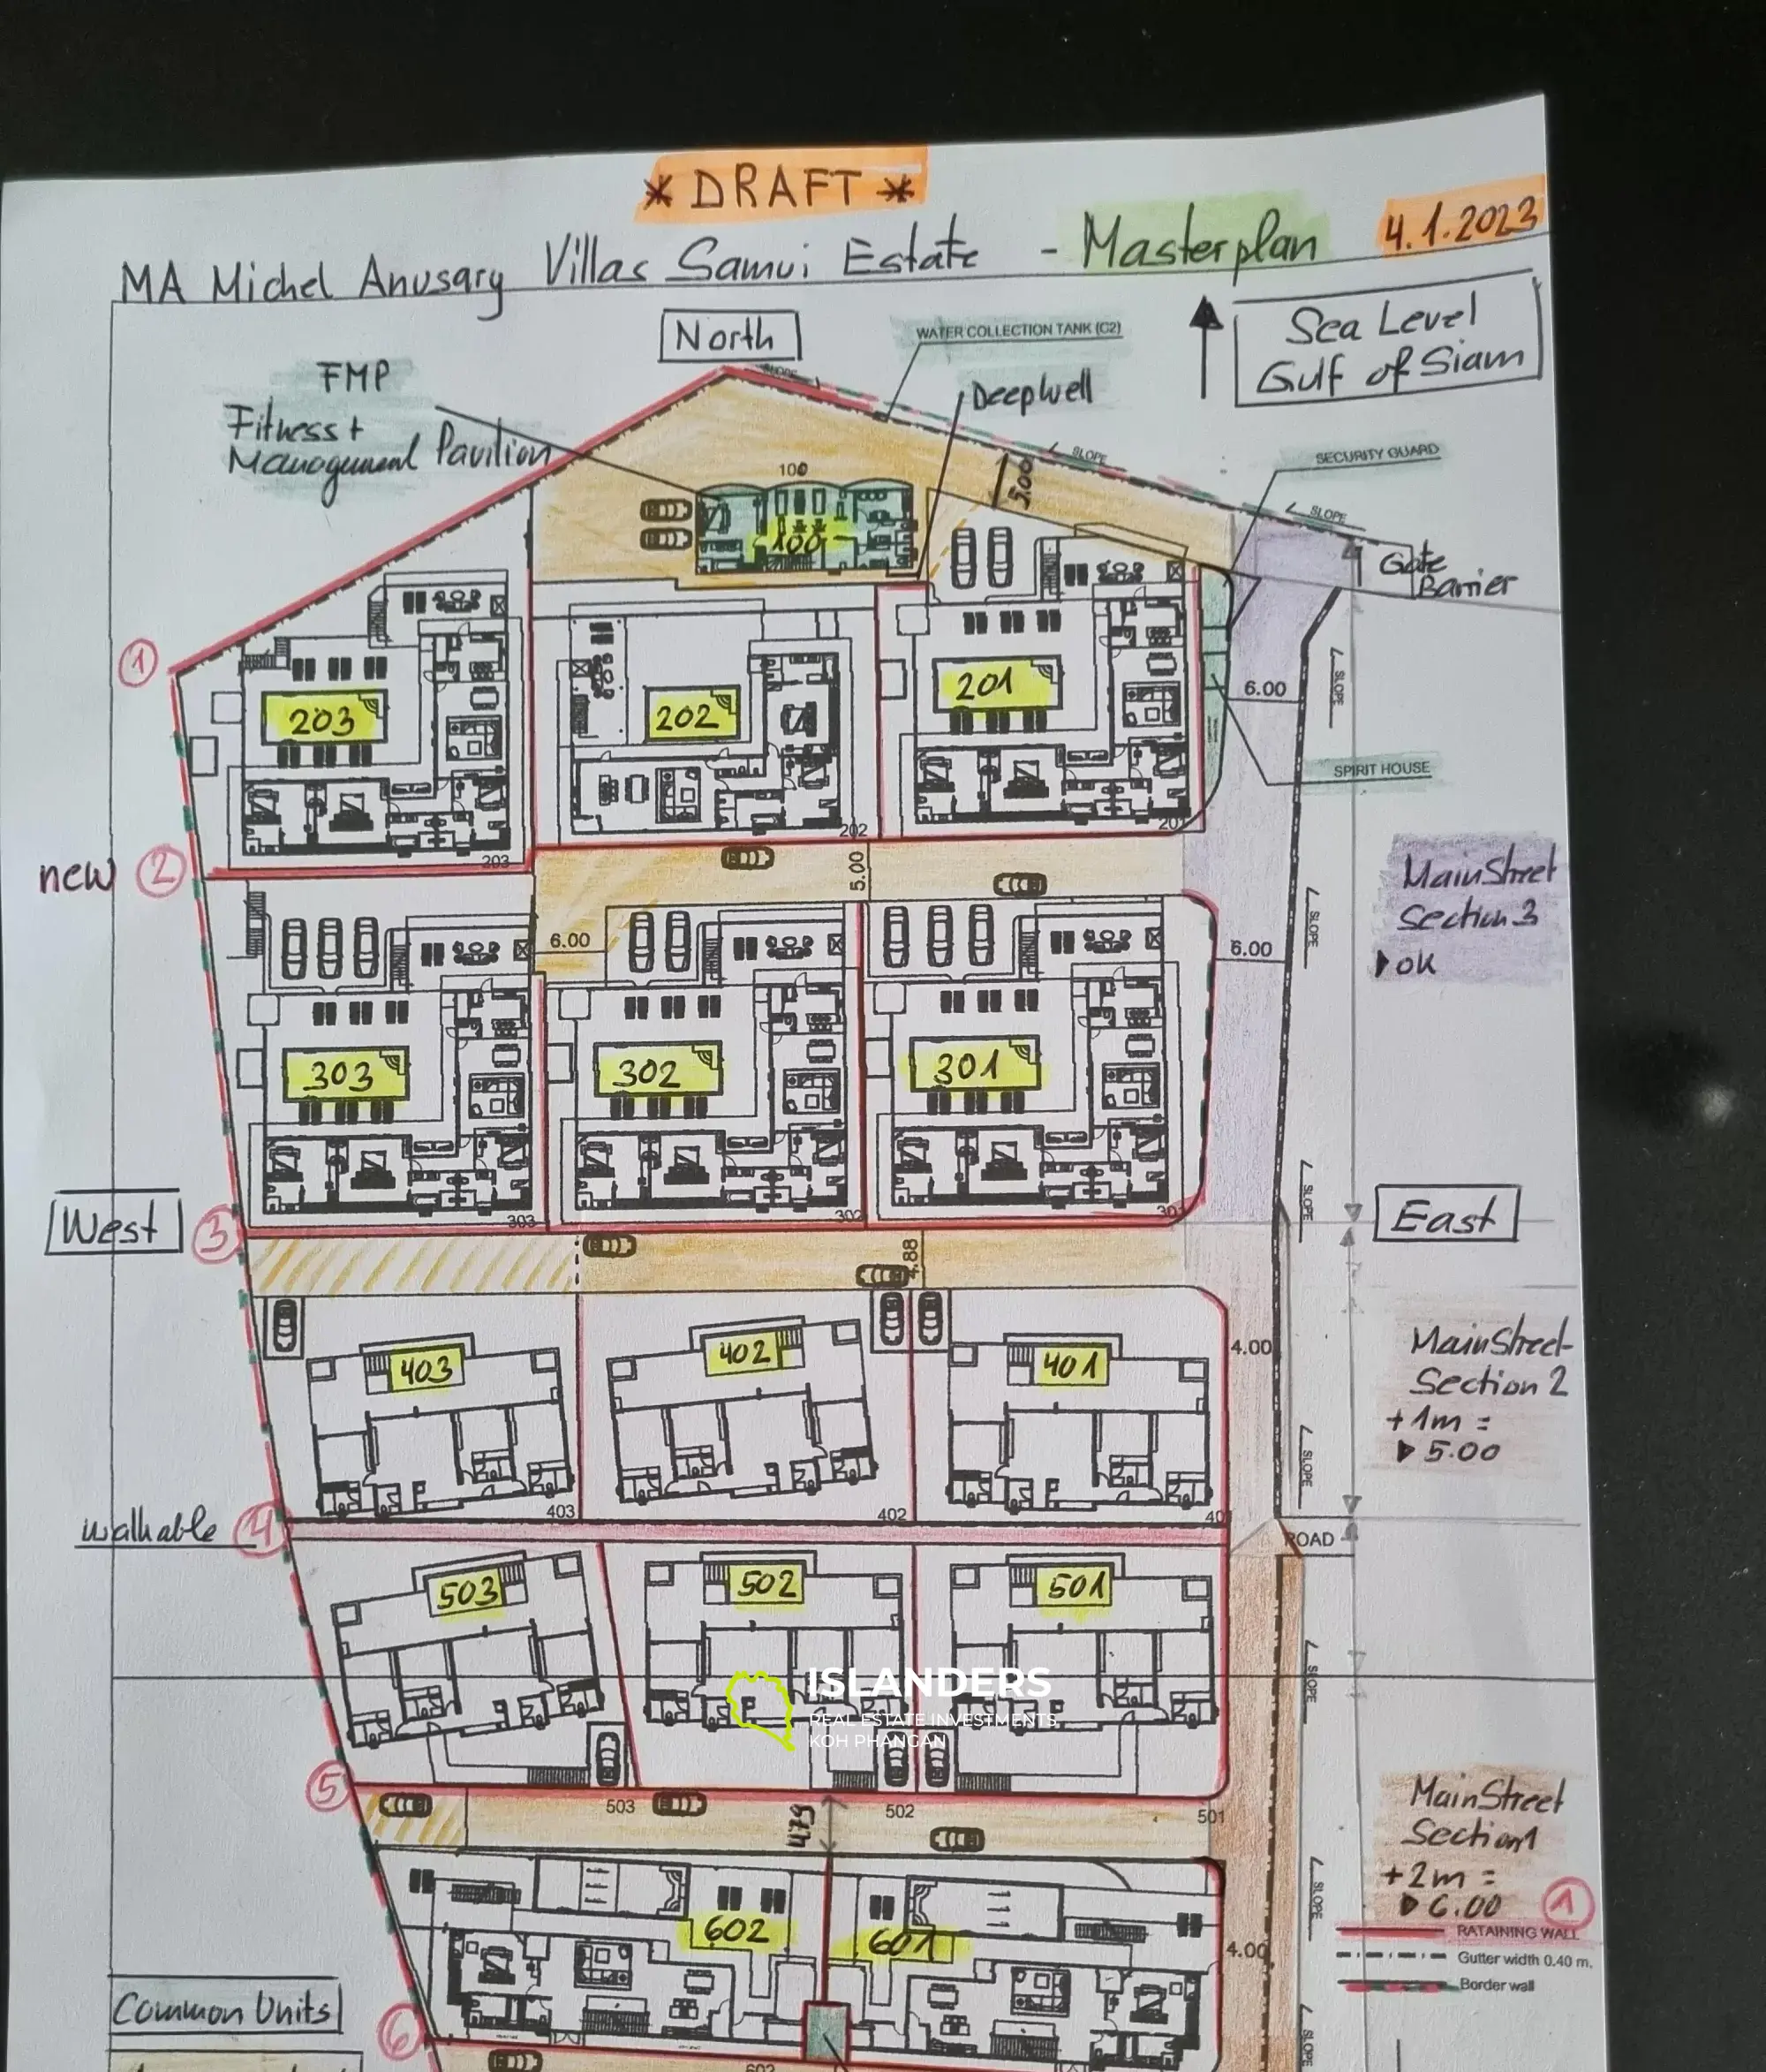 * DRAFT *
4.1.2023
MA Michel Anusary Villas Samui Estate - Masterplan
North
Sea Level
Gulf of Siam
WATER COLLECTION TANK (C2)
FMP
Fitness +
Management Pavilion
Deepwell
SLOPE
SLOPE
SECURITY GUARD
SLOPE
100
5.00
100
Gate
Barrier
1
203
202
201
6.00
SLOPE
SPIRIT HOUSE
203
202
201
new
2
5.00
MainStreet
Section 3
OK
6.00
6.00
SLOPE
303
302
301
303
302
301
West
3
East
SLOPE
4.88
403
402
401
4.00
MainStreet-
Section 2
+1m =
5.00
SLOPE
403
402
40
walkable
4
ROAD
503
502
501
SLOPE
ISLANDERS
REAL ESTATE INVESTMENTS
KOH PHANGAN
5
503
4.79
502
501
MainStreet
Section 1
+2m =
6.00
1
SLOPE
602
601
4.00
RATAINING WALL
Gutter width 0.40 m.
Border wall
Common Units
6
SLOPE
602